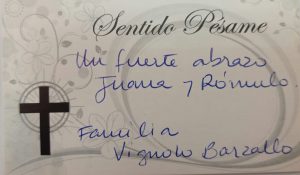 Sentido Pésame
Un fuerte abrazo
Juana y Rómulo.
Familia
Vignolo Barzallo